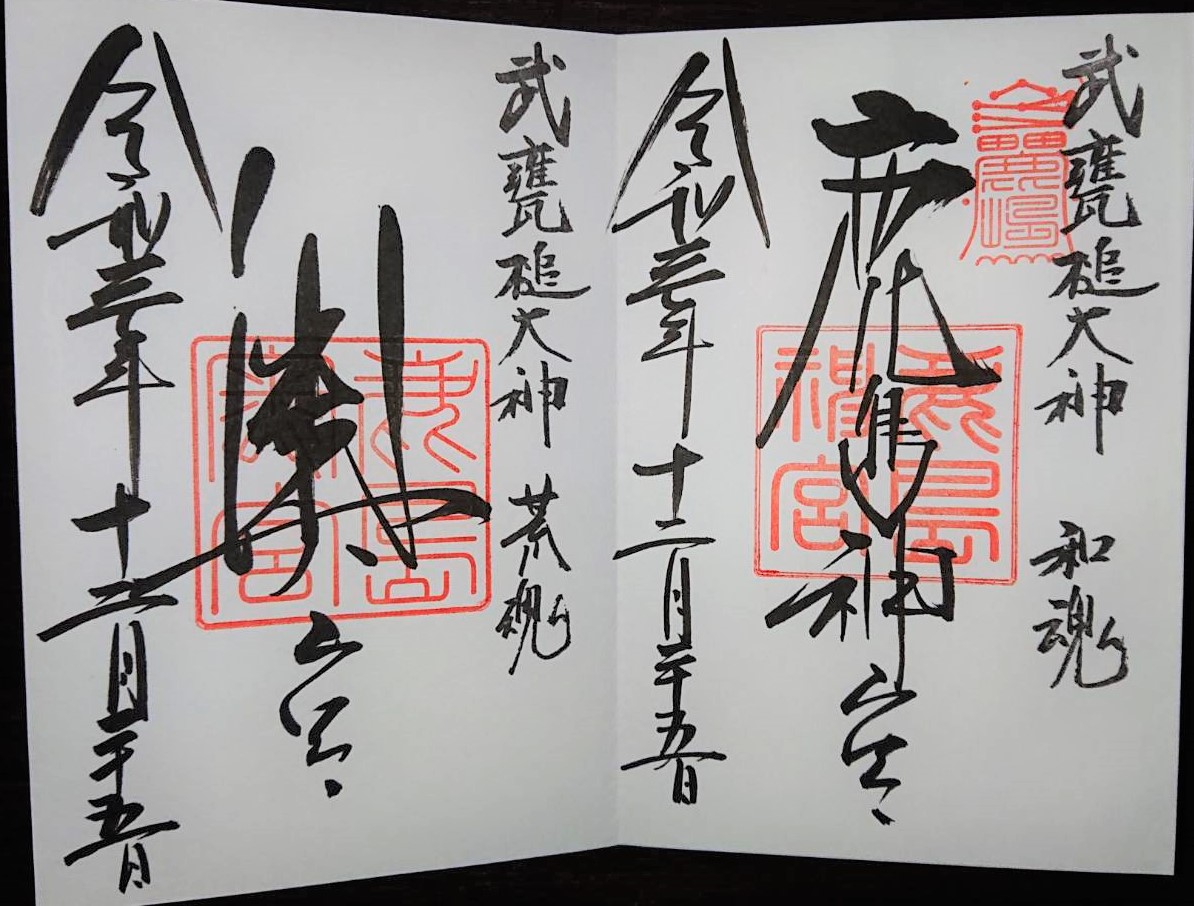 武甕槌大神 和魂
鹿島神宮
鹿島神宮
令和三年十二月二十五日
武甕槌大神 荒魂
奥宮
鹿島奥宮
令和三年十二月二十五日